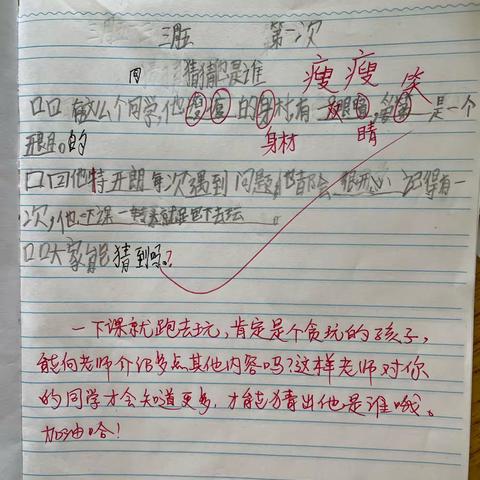 三班 第一次
猜猜他是谁
瘦瘦 笑
有这么个同学,他瘦瘦的身材,有一双眼睛,是一个
身材 睛
开朗的
他特开朗每次遇到问题,他都会很开心 记得有一
次,他一下课一转就跑下去玩
大家能猜到吗?
一下课就跑去玩,肯定是个贪玩的孩子,
能向老师介绍多点其他内容吗?这样老师对你
的同学才会知道更多,才能猜出他是谁哦。
加油哈!